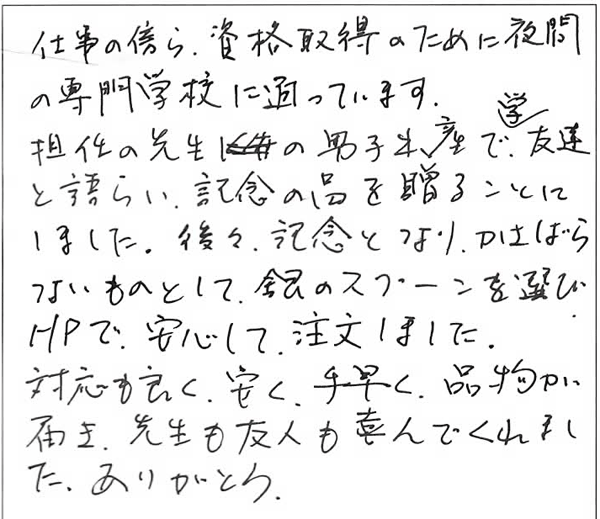 仕事の傍ら、資格取得のために夜間
の専門学校に通っています。
担任の先生の男子出産で、学友達
と語らい、記念の品を贈ることに
しました。後々、記念となり、かさばら
ないものとして、銀のスプーンを選び
HPで、安心して、注文しました。
対応も良く、安く、手早く、品物が
届き、先生も友人も喜んでくれまし
た。ありがとう。